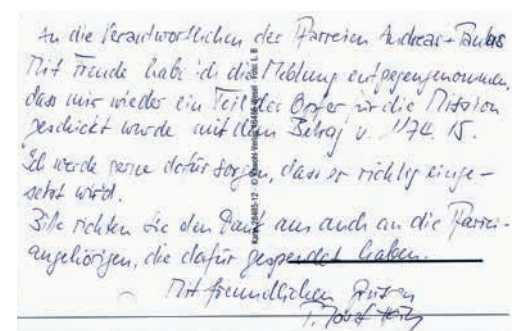 An die Verantwortlichen der Pfarreien Andreas + Paulus
Mit Freude habe ich die Meldung entgegengenommen,
dass mir wieder ein Teil der Opfer für die Mission
geschickt wurde mit dem Betrag v. 1174.15.
Ich werde gerne dafür sorgen, dass er richtig einge-
setzt wird.
Bitte richten Sie den Dank aus auch an die Pfarrei-
angehörigen, die dafür gespendet haben.
Mit freundlichen Grüssen
P. Josef